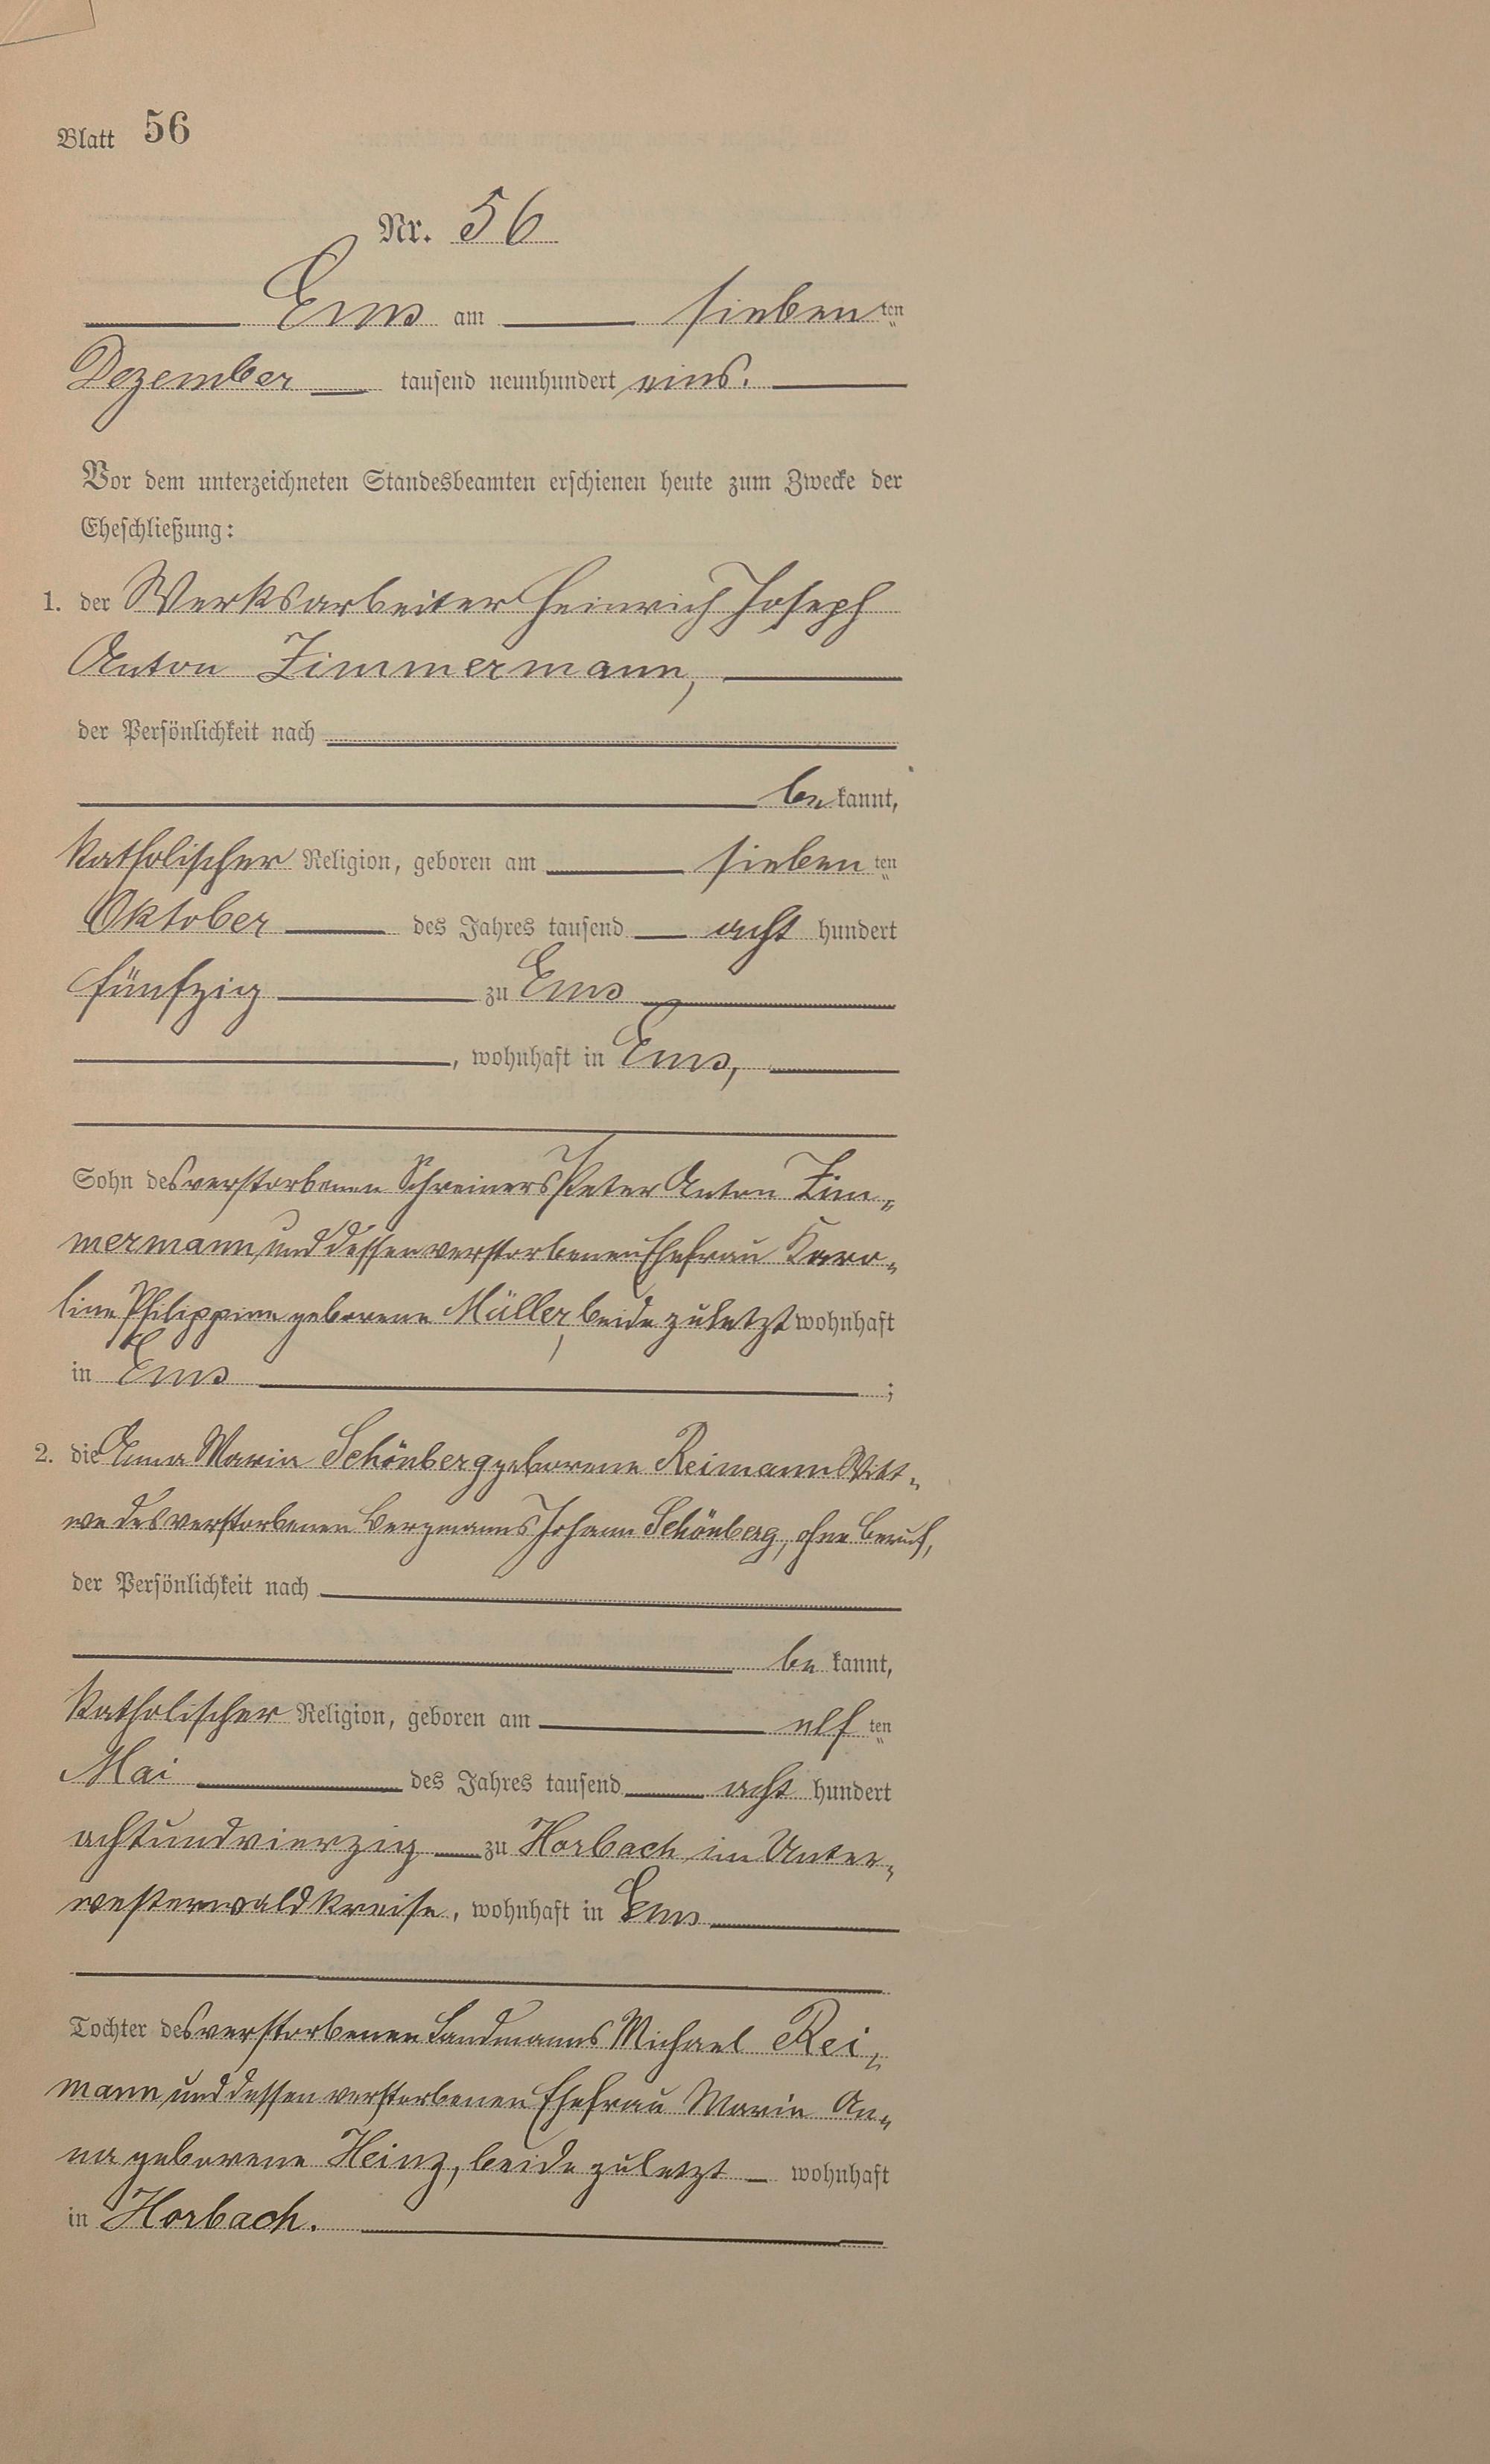 Blatt 56
Nr. 56
Ems am siebenten
Dezember tausend neunhundert eins.
Vor dem unterzeichneten Standesbeamten erschienen heute zum Zwecke der
Eheschließung:
1. der Werksarbeiter Heinrich Joseph
Anton Zimmermann,
der Persönlichkeit nach
be kannt,
katholischer Religion, geboren am siebenten
Oktober des Jahres tausend acht hundert
fünfzig zu Ems
, wohnhaft in Ems,
Sohn des verstorbenen Schreiners Peter Anton Zim„
mermann und dessen verstorbenen Ehefrau Karo„
line Philippine geborene Müller, beide zuletzt wohnhaft
in Ems ;
2. die Anna Maria Schönberg geborene Reimann Witt„
we des verstorbenen Bergmanns Johann Schönberg, ohne Beruf,
der Persönlichkeit nach
be kannt,
katholischer Religion, geboren am elften
Mai des Jahres tausend acht hundert
achtundvierzig zu Horbach im Unter„
westerwaldkreise, wohnhaft in Ems
Tochter des verstorbenen Landmanns Michael Rei„
mann und dessen verstorbenen Ehefrau Maria An„
na geborene Heinz, beide zuletzt wohnhaft
in Horbach.